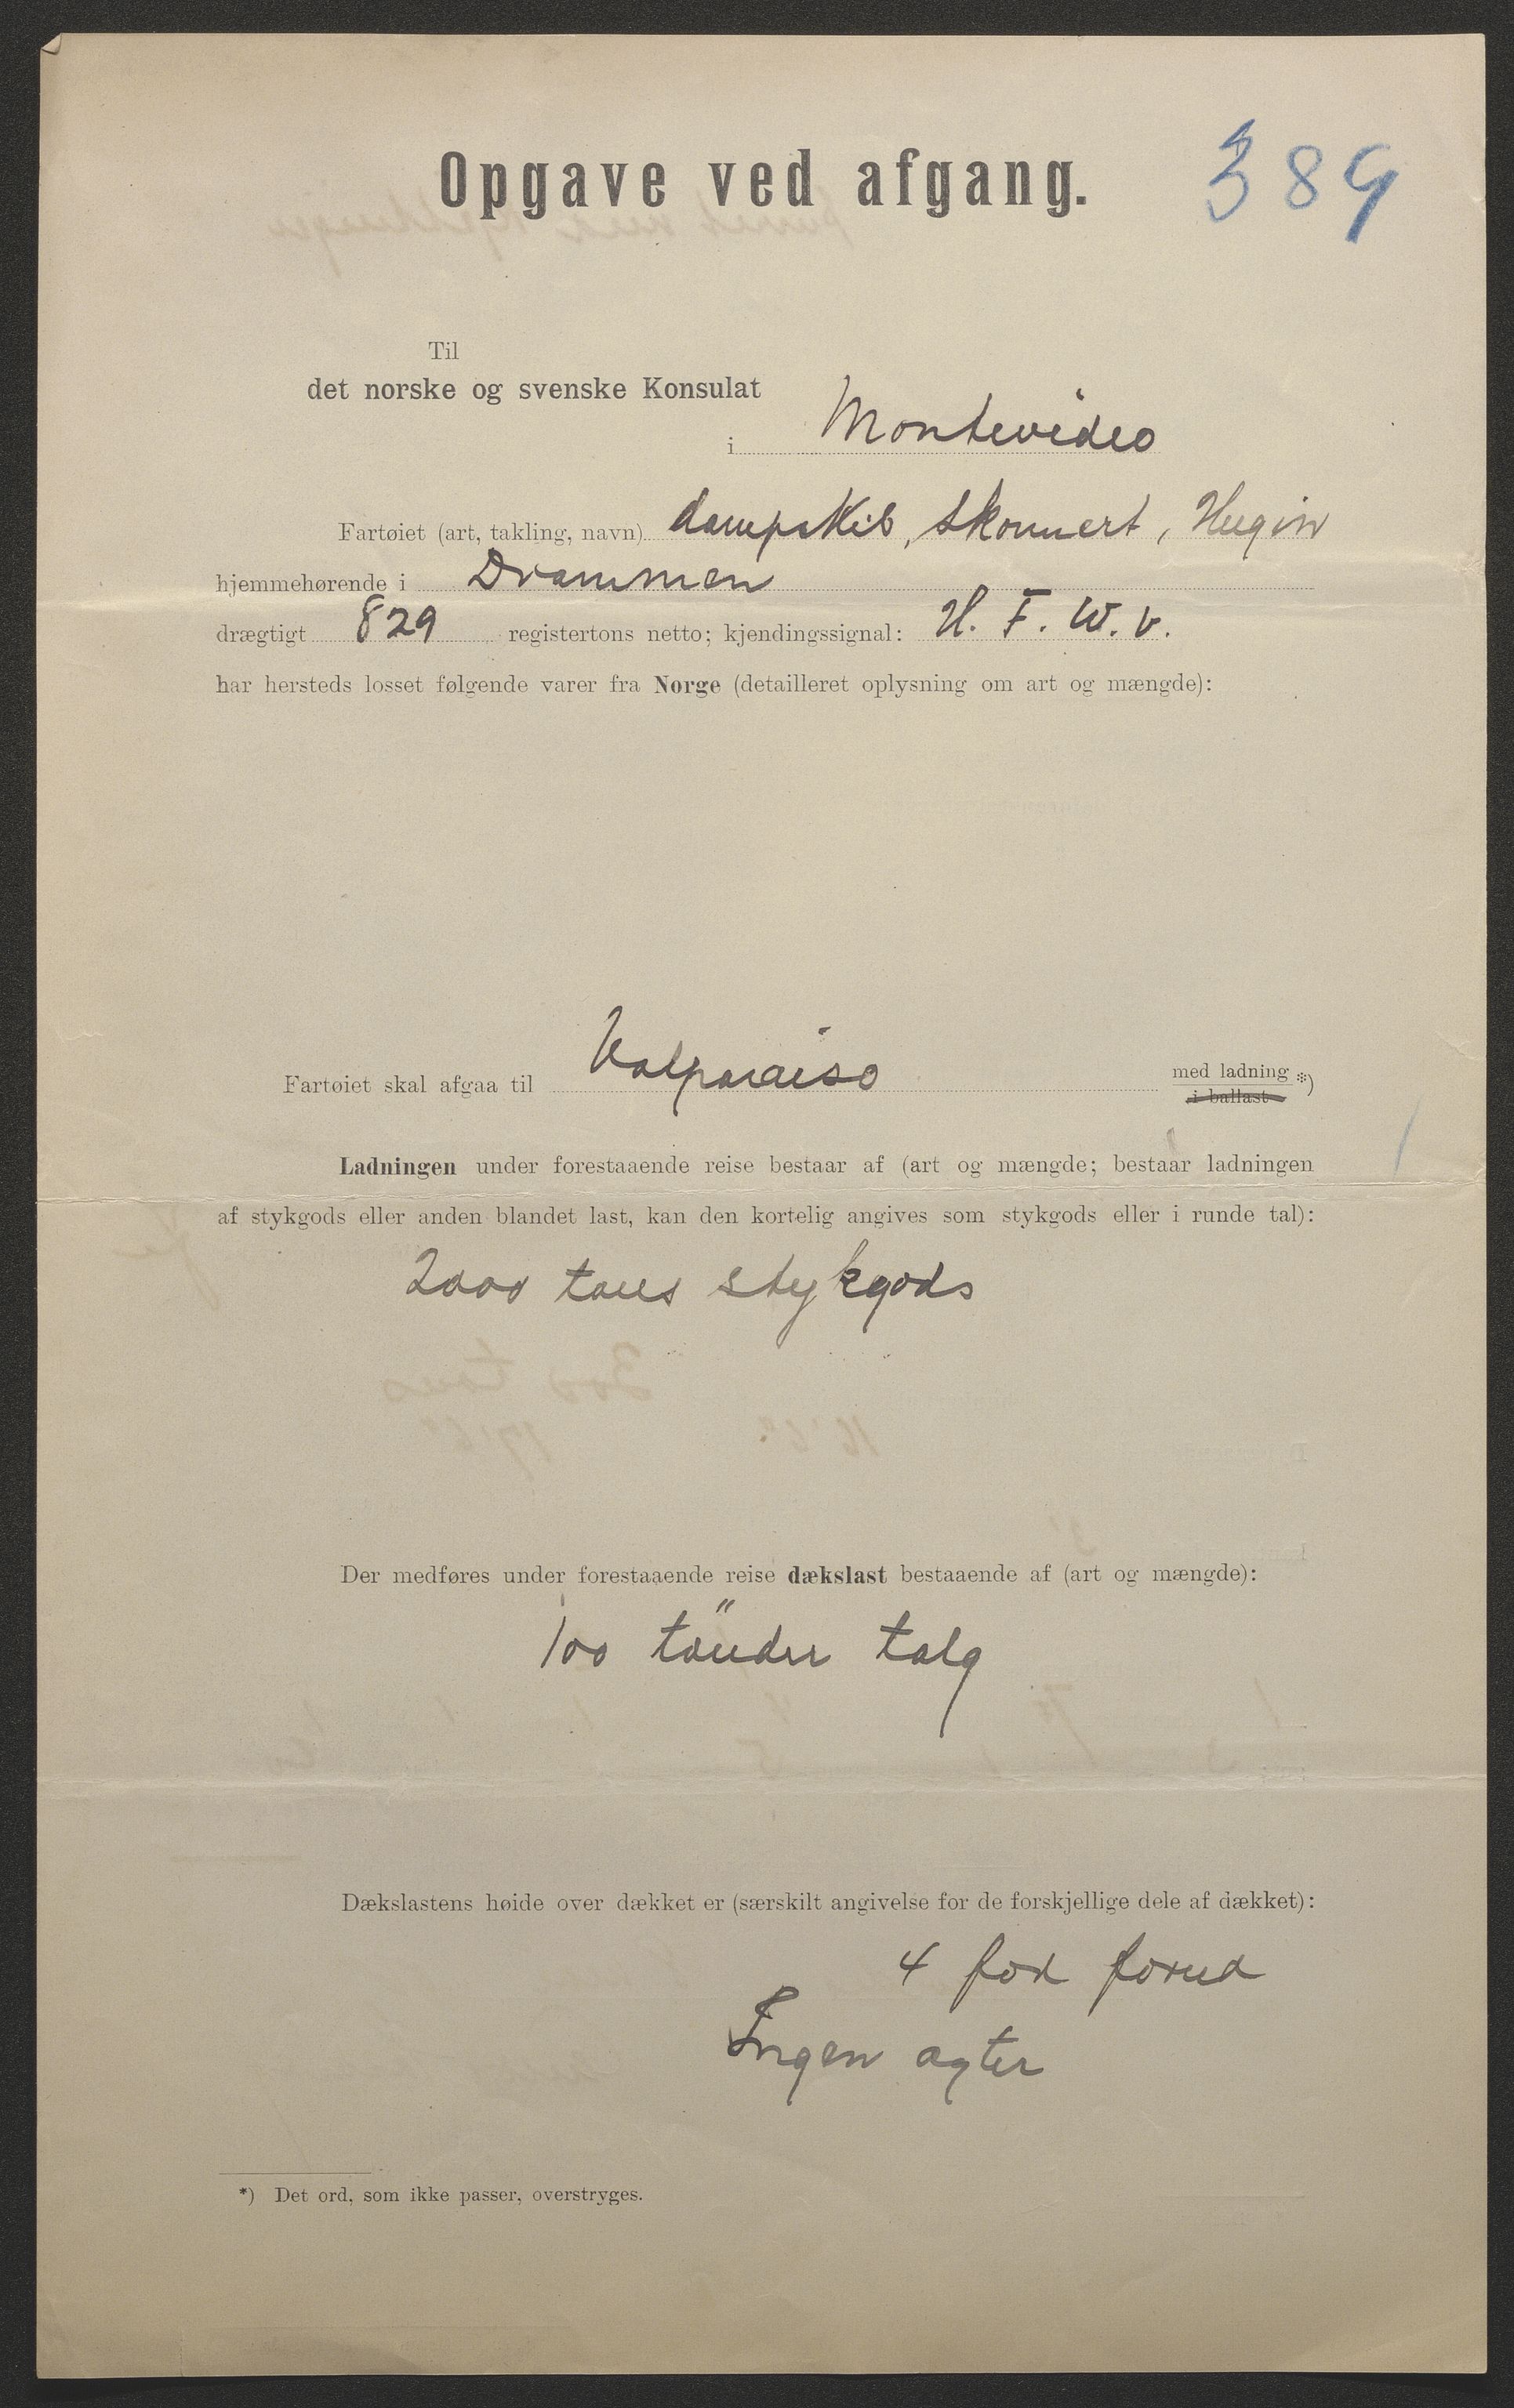 Opgave ved afgang.
389
Til
det norske og svenske Konsulat
i Montevideo
Fartøiet (art, takling, navn) dampskib, skonnert, Hugin
hjemmehørende i Drammen
drægtigt 829 registertons netto; kjendingssignal: H. F. W. V.
har hersteds losset følgende varer fra Norge (detailleret oplysning om art og mængde):
Fartøiet skal afgaa til Valparaiso med ladning *)
i ballast
Ladningen under forestaaende reise bestaar af (art og mængde; bestaar ladningen
af stykgods eller anden blandet last, kan den kortelig angives som stykgods eller i runde tal):
2000 tons stykgods
Der medføres under forestaaende reise dækslast bestaaende af (art og mængde):
100 tönder talg
Dækslastens høide over dækket er (særskilt angivelse for de forskjellige dele af dækket):
4 fod forud
Ingen agter
*) Det ord, som ikke passer, overstryges.